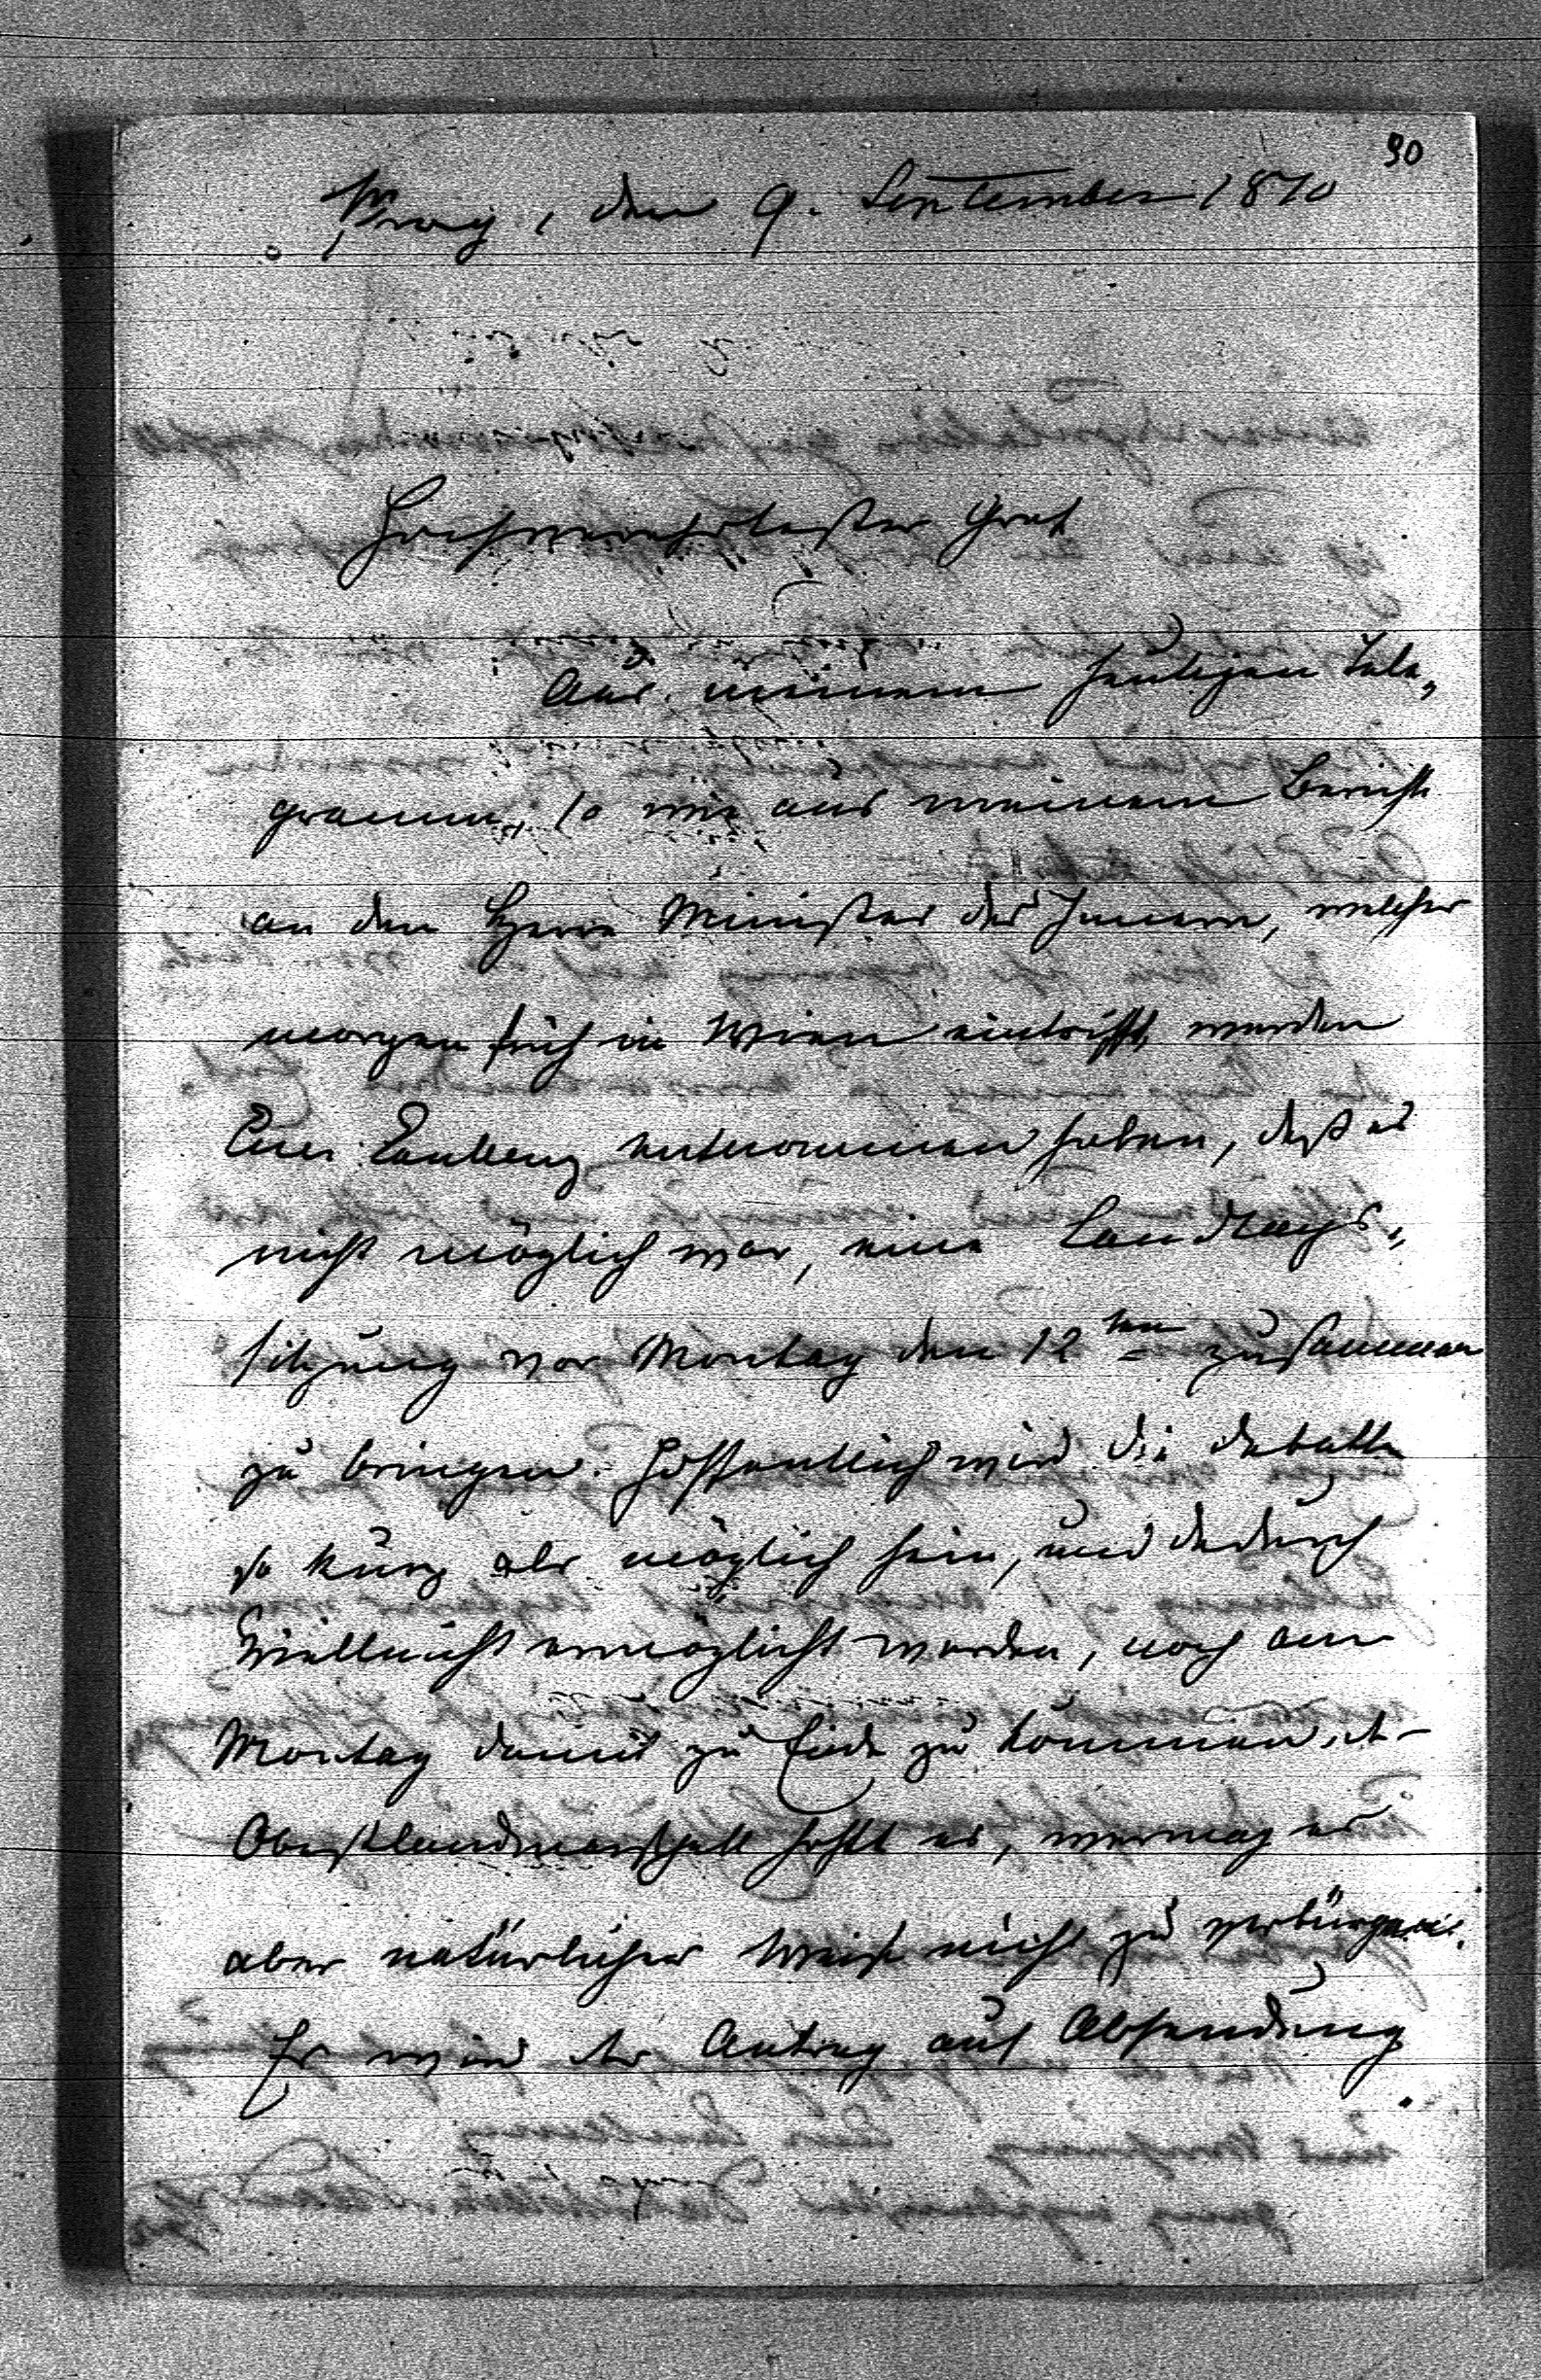 90
Prag, den 9. September 1870
Hochverehrtester Graf
Aus meinem heutigen Tele„
gramm, so wie aus meinem Bericht
an den Herrn Minister des Innern, welcher
morgen früh in Wien eintrifft, werden
Euer Excellenz entnommen haben, daß es
nicht möglich war, eine Landtags„
sitzung vor Montag den 12ten zusammen
zu bringen. Hoffentlich wird die Debatte
so kurz als möglich sein, und dadurch
vielleicht ermöglicht werden, noch am
Montag damit zu Ende zu kommen, der
Oberstlandmarschall hofft es, vermag es
aber natürlicher Weise nicht zu verbürgen.
Es wird der Antrag auf Absendung